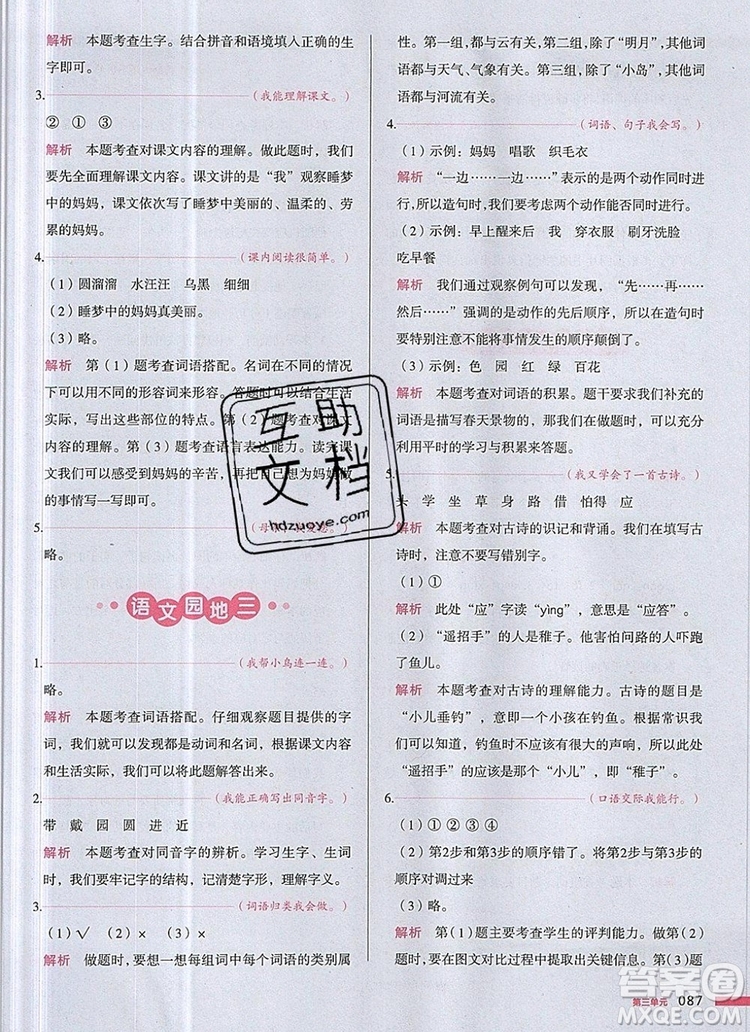 解析 本题考查生字。结合拼音和语境填入正确的生
字即可。
3.（我能理解课文。）
② ① ③
解析 本题考查对课文内容的理解。做此题时，我们
要先全面理解课文。课文讲的是“我”观察睡梦
中的妈妈，课文依次写了睡梦中的美丽的、温柔的、劳
累的妈妈。
4.（课内阅读很简单。）
（1）圆溜溜 水汪汪 乌黑 细细
（2）睡梦中的妈妈真美丽。
（3）略。
解析 第（1）题考查词语搭配。名词在不同的情况
下可以用不同的形容词来形容。答题时可以结合生活
实际，写出这些部位的特点。第（2）题考查
文内容的理解。第（3）题考查语言表达能力。读完课
文我们可以感受到妈妈的辛苦，再把自己想为妈妈做
的事情写一写即可。
5.
略。
语文园地三
1.（我帮小鸟连一连。）
略。
解析 本题考查词语搭配。仔细观察题目提供的字
词，我们就可以发现都是动词和名词，根据课文内容
和生活实际，我们就可以把这道题解答出来。
2.（我能正确写出同音字。）
带 戴 园 圆 进 近
解析 本题考查对同音字的辨析。学习生字、生词
时，我们要牢记字的结构，记清楚字形、字义。
3.（词语归类我会做。）
（1）√ （2）× （3）×
解析 做题时，要想一想每组词中每个词语的类别属
性。第一组，都与云有关。第二组，除了“明月”，其他
词语都与天气、气象有关。第三组，除了“小岛”，其他
词语都与河流有关。
4.（词语、句子我会写。）
（1）示例：妈妈 唱歌 织毛衣
解析 “一边……一边……”表示的是两个动作同时进
行，所以造句时，我们要考虑两个动作能否同时进行。
（2）示例：早上醒来后 我 穿衣服 刷牙洗脸
吃早餐
解析 我们通过观察例句可以发现，“先……再……
然后……”强调的是动作的先后顺序，所以我们造句时
要特别注意不能将事情发生的顺序颠倒了。
（3）示例：色 园 红 绿 百花
解析 本题考查对词语的积累。题干要求我们补充的
词语是描写春天景物的，那么我们在做题时，可以充分
利用平时的学习与积累来答题。
5.（我又学会了一首古诗。）
头 学 坐 草 身 路 借 怕得 应
解析 本题考查对古诗的识记和背诵。我们在填写古
诗时，注意不要写错别字。
（1）①
解析 此处“应”字读“yìng”，意思是“应答”。
（2）“遥招手”的人是稚子。他害怕问路的人吓跑
了鱼儿。
解析 本题考查对古诗的理解能力。古诗的题目是
“小儿垂钓”，意思是一个小孩在钓鱼。根据常识我
们可以知道，钓鱼时不能有很大的声响，所以我们推
断“遥招手”的应该是那个“小儿”，即“稚子”。
6.（口语交际我能行。）
（1）①②③④
（2）第2步和第3步的顺序错了。将第2步和第3步的顺
序调过来
（3）略。
解析 第（1）题主要考查学生的评判能力。做第（2）
题时，要在图文对比过程中提取出关键信息。第（3）题
第三单元 087
互助
文档
hdzuoye.com
答案圈
MXQE.COM